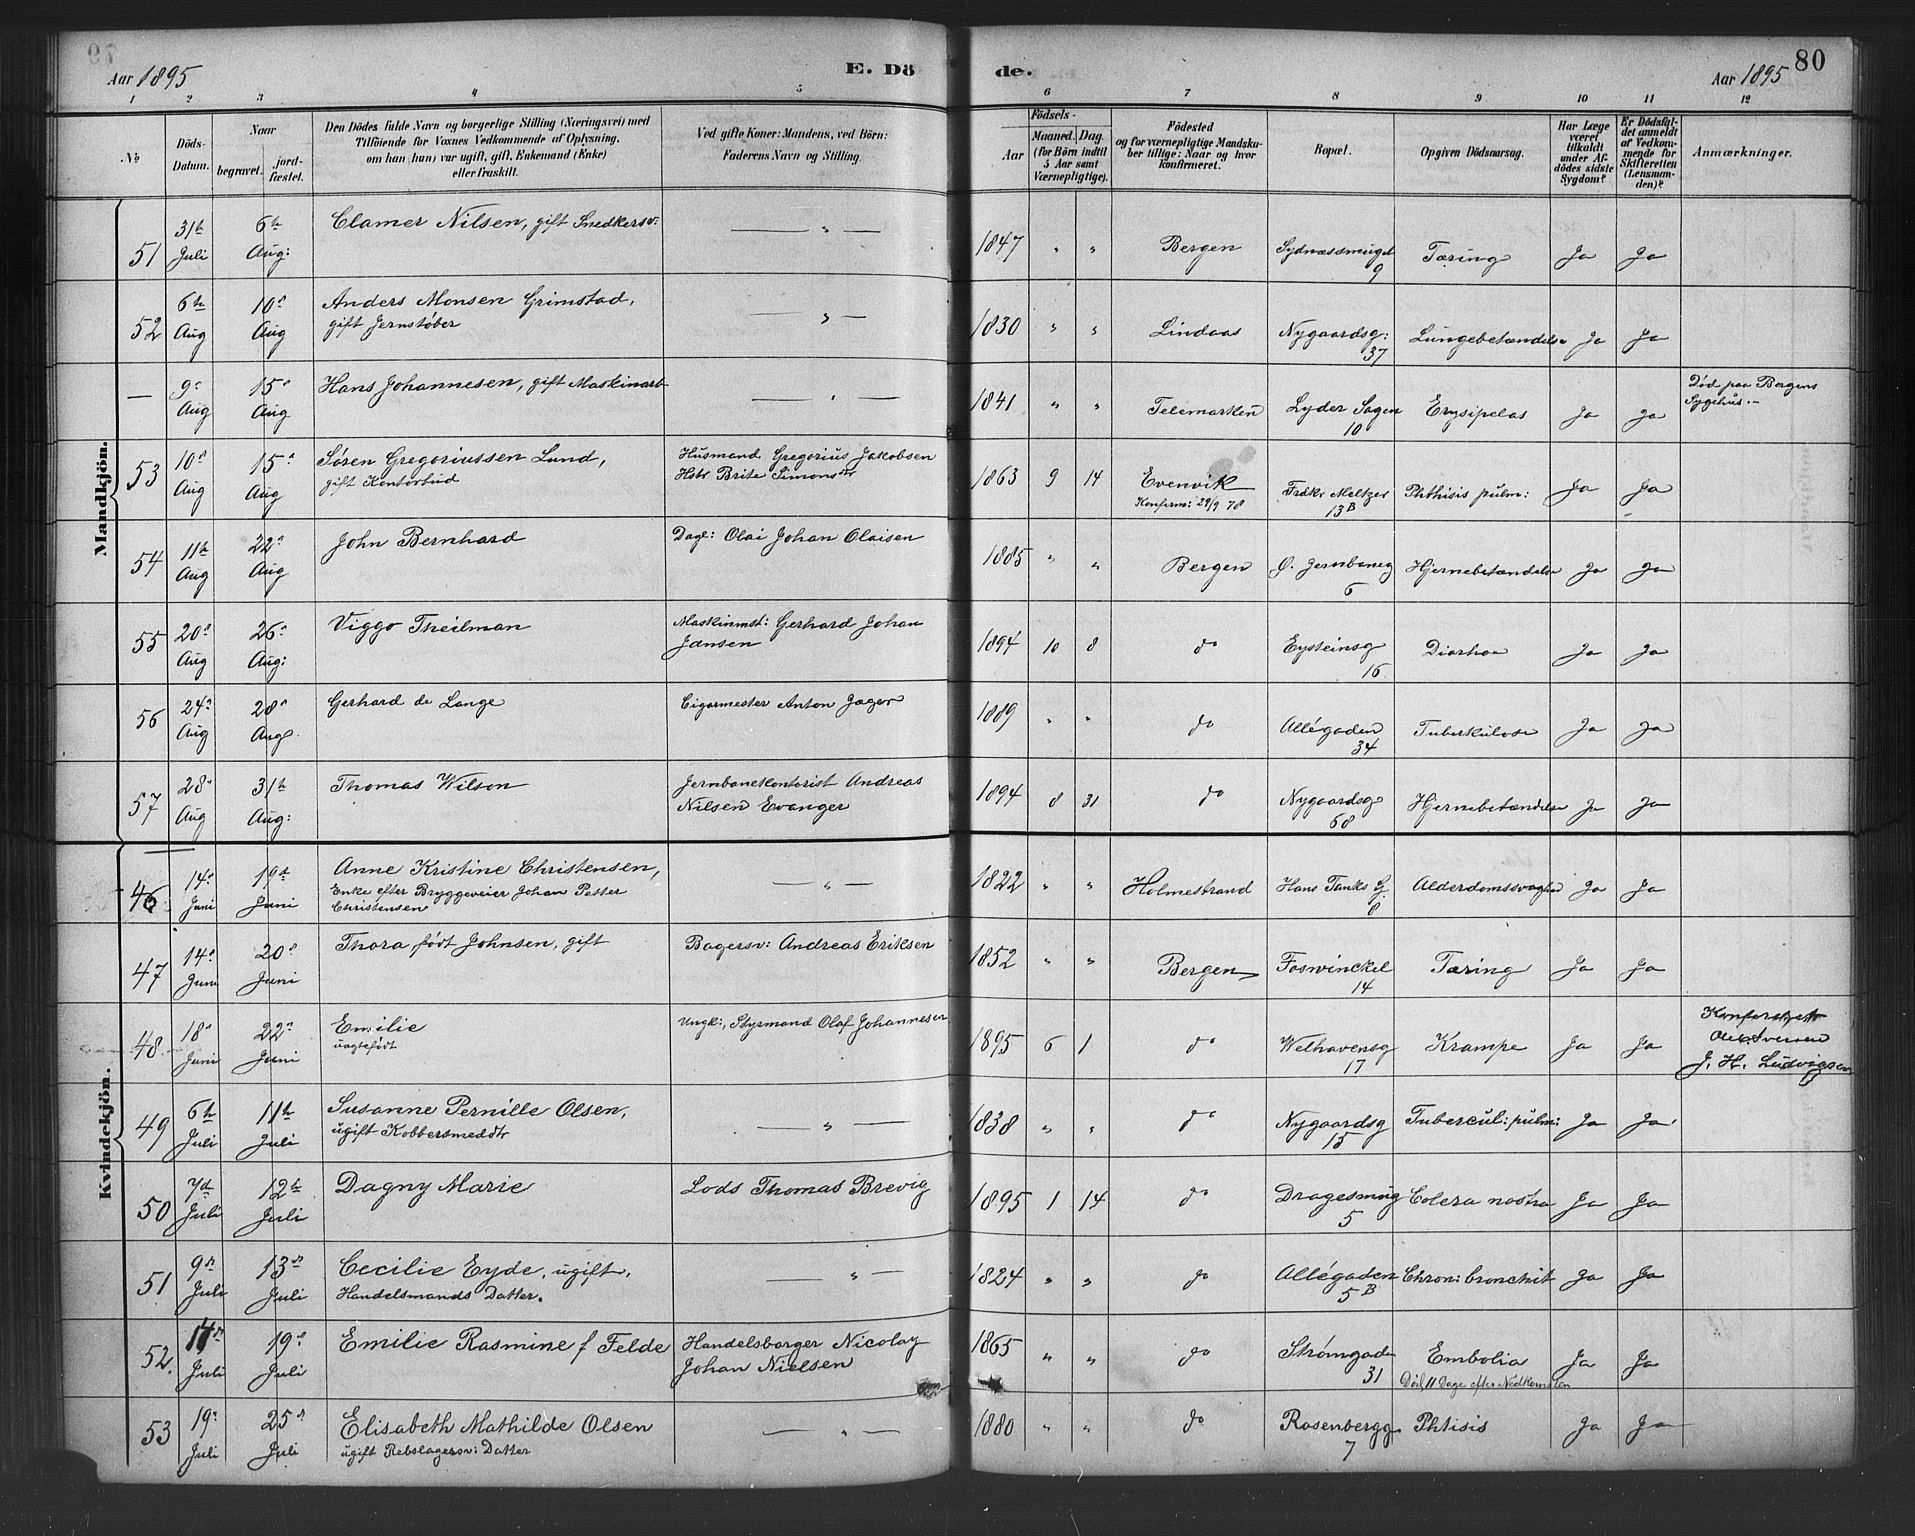 Aar 1895 E. Dö
de. Aar 1895 80
1 2 3 4 5 6 7 8 9 10 11 12
№
Döds-Datum.
Naar
begravet. jordfæstet.
Den Dödes fulde Navn og borgerlige Stilling (Næringsvei) med
Tilföiende for Voxnes Vedkommende af Oplysning,
om han (hun) var ugift, gift, Enkemand (Enke)
eller fraskilt.
Ved gifte Koner: Mandens, ved Börn:
Faderens Navn og Stilling.
Födsels-
Aar Maaned. Dag.
(for Börn indtil
5 Aar samt
Værnepligtige).
Födested
og for værnepligtige Mandska-
ber tillige: Naar og hvor
konfirmeret.
Bopæl.
Opgiven Dödsaarsag.
Har Læge
været
tilkaldt
under Af-
dödes sidste
Sygdom?
Er Dödsfal-
det anmeldt
af Vedkom-
mende for
Skifteretten
(Lensman-
den)?
Anmærkninger.
Mandkjön.
51 31te Juli 6te Aug: Clamer Nilsen, gift Snedkersv: — „ — 1847 „ „ Bergen Sydnæssmuget 9 Tæring Ja Ja
52 6te Aug 10de Aug Anders Monsen Grimstad,
gift Jernstøber — „ — 1830 „ „ Lindaas Nygaardsg: 37 Lungebetændelse Ja Ja
— 9de Aug 15de Aug Hans Johannesen, gift Maskinarb — „ — 1841 „ „ Telemarken Lyder Sagen 10 Erysipelas Ja Ja Død paa Bergens
Sygehus.—
53 10de Aug 15de Aug Søren Gregoriussen Lund,
gift Kontorbud Husmand Gregorius Jakobsen
Hstr Brite Simonsdtr 1863 9 14 Evenvik
Konfirm: 29/9 78 Fredkr Meltzer 13B Phthisis pulm: Ja Ja
54 11te Aug 22de Aug John Bernhard Dagl: Olai Johan Olaisen 1885 „ „ Bergen Ø. Jernbaneg 6 Hjernebetændelse Ja Ja
55 20de Aug 26de Aug: Viggo Theilman Maskinmst: Gerhard Johan
Jansen 1894 10 8 do Eysteinsg 16 Diarhoe Ja Ja
56 24de Aug 28de Aug Gerhard de Lange Cigarmester Anton Jager 1889 „ „ do Allégaden 34 Tuberkulose Ja Ja
57 28de Aug 31te Aug: Thomas Wilson Jernbanekontorist Andreas
Nilsen Evanger 1894 8 31 do Nygaardsg 68 Hjernebetændelse Ja Ja
Kvindekjön.
46 14de Juni 19de Juni Anne Kristine Christensen,
Enke efter Bryggeveier Johan Petter
Christensen — „ — 1822 „ „ Holmestrand Hans Tanks G. 8 Alderdomssvaghed Ja Ja
47 14de Juni 20de Juni Thora født Johnsen, gift Bagersv: Andreas Eriksen 1852 „ „ Bergen Foswinckel 14 Tæring Ja Ja
48 18de Juni 22de Juni Emilie
uægtefødt Ungk:, Styrmand Olaf Johannesen 1895 6 1 do Welhavensg 17 Krampe Ja Ja J. H. Ludvigsen
49 6te Juli 11te Juli Susanne Pernille Olsen,
ugift Kobbersmeddtr — „ — 1838 „ „ do Nygaardsg 15 Tubercul: pulm: Ja Ja
50 7de Juli 12te Juli Dagny Marie Lods Thomas Brevig 1895 1 14 do Dragesmug 5 Colera nostra Ja Ja
51 9de Juli 13de Juli Cecilie Eyde, ugift,
Handelsmands Datter. — „ — 1824 „ „ do Allégaden 5B Chron: bronchit Ja Ja
52. 14de Juli 19de Juli Emilie Rasmine f Felde Handelsborger Nicolay
Johan Nielsen 1865 „ „ do Strømgaden 31 Embolia
Død 11 Dage efter Nedkomsten Ja Ja
53 19de Juli 25de Juli Elisabeth Mathilde Olsen
ugift Rebslagersv: Datter — „ — 1880 „ „ do Rosenbergg 7 Phtisis Ja Ja